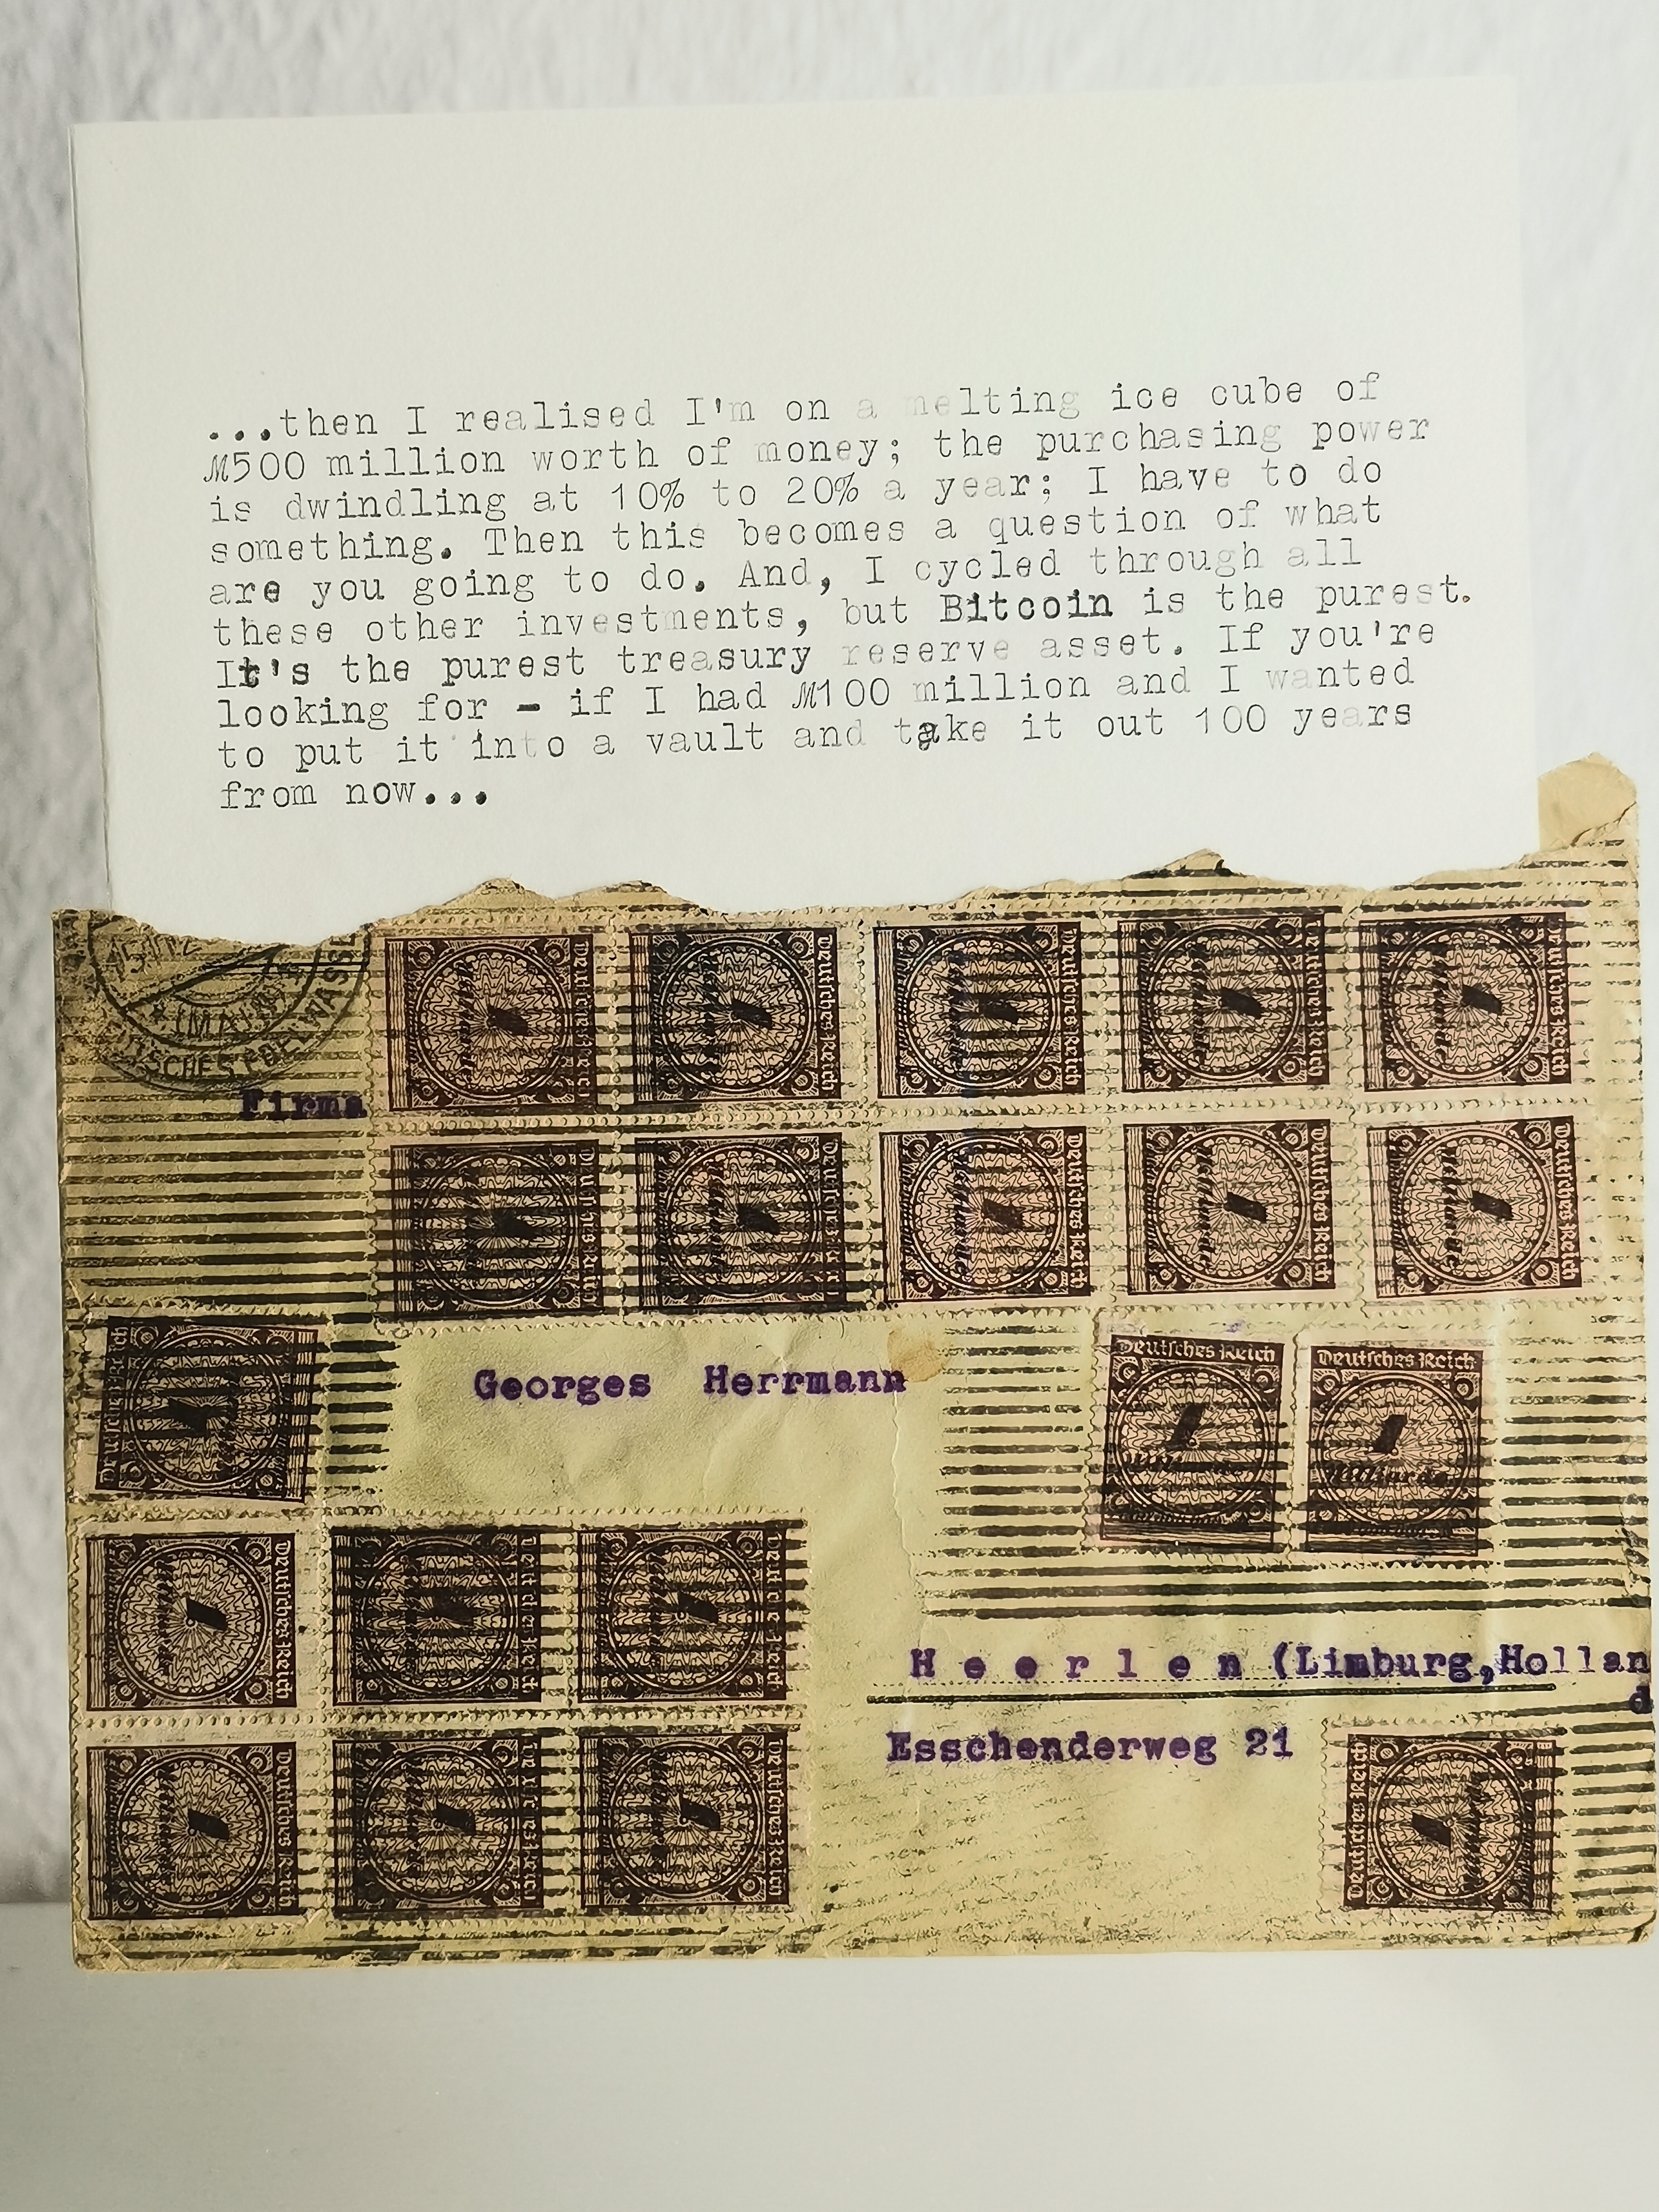 ...then I realised I'm on a melting ice cube of
ℳ500 million worth of money; the purchasing power
is dwindling at 10% to 20% a year; I have to do
something. Then this becomes a question of what
are you going to do. And, I cycled through all
these other investments, but Bitcoin is the purest.
It's the purest treasury reserve asset. If you're
looking for - if I had ℳ100 million and I wanted
to put it into a vault and take it out 100 years
from now...
Firma
Deutsches Reich
Deutsches Reich
Deutsches Reich
Deutsches Reich
Deutsches Reich
Deutsches Reich
Deutsches Reich
Deutsches Reich
Deutsches Reich
Deutsches Reich
Deutsches Reich
Georges Herrmann
Deutsches Reich
Deutsches Reich
Milliarde
Deutsches Reich
Deutsches Reich
Deutsches Reich
H e e r l e n (Limburg,Hollan
d
Esschenderweg 21
Deutsches Reich
Deutsches Reich
Deutsches Reich
Deutsches Reich